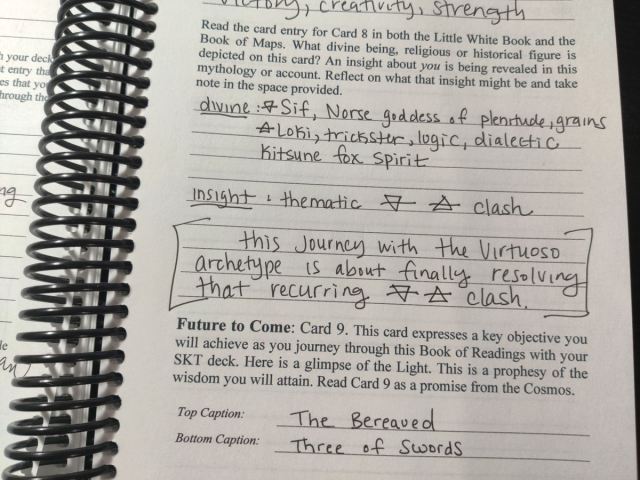 victory, creativity, strength
Read the card entry for Card 8 in both the Little White Book and the
Book of Maps. What divine being, religious or historical figure is
depicted on this card? An insight about you is being revealed in this
mythology or account. Reflect on what that insight might be and take
note in the space provided.
divine: 🜃 Sif, Norse goddess of plentude, grains
🜁 Loki, trickster, logic, dialectic
Kitsune fox spirit
insight: thematic 🜃 🜁 clash
this journey with the Virtuoso
archetype is about finally resolving
that recurring 🜃 🜁 clash.
Future to Come: Card 9. This card expresses a key objective you
will achieve as you journey through this Book of Readings with your
SKT deck. Here is a glimpse of the Light. This is a prophesy of the
wisdom you will attain. Read Card 9 as a promise from the Cosmos.
Top Caption: The Bereaved
Bottom Caption: Three of Swords
your deck
entry tha
es that yo
hrough the